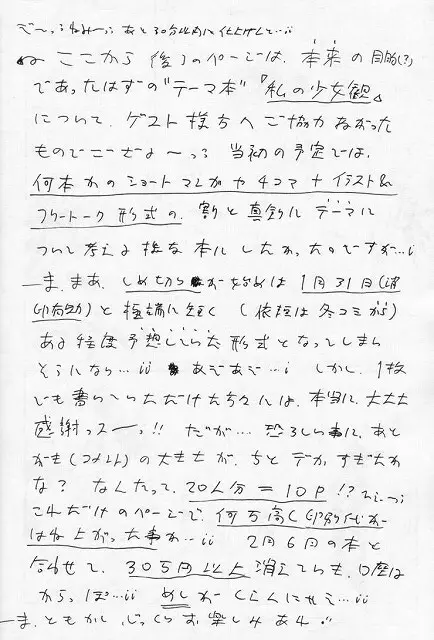 で〜っうわみ〜っ あと30分以内に仕上げんと…ii
ここから後ろのページは、本来の目的(?)
であったはずの"テーマ本"『私の少女観』
について、ゲスト様方へご協力ねがった
ものでござよ〜っっ 当初の予定では、
何本かのショートマンガや4コマ+イラスト&
フリートーク形式の、割と真剣にテーマに
ついて考える様な本にしたかったのですが…i
ま、まあ、しめ切りが始めは1月31日(消
印有効)と極端に短く (依頼は冬コミから)
ある程度予想していた形式となってしまい
そうになり…ii あぞあぞ…i しかし、1枚
でも書いていただけた方々には、本当に、大大大
感謝っスーっ!! だが…恐ろしい事に、あと
がき(コメント)の大きさが、ちとデカすぎたか
な? なんたって、20人分=10P!?
これだけのページで、何万高く印刷代が
はね上がった事か…ii 2月6日の本と
合わせて、30万円以上消えてらも、口座は
からっぽ…ii めしがくらんにせえ…ii
ま、ともかく、じっくりお楽しみあれ